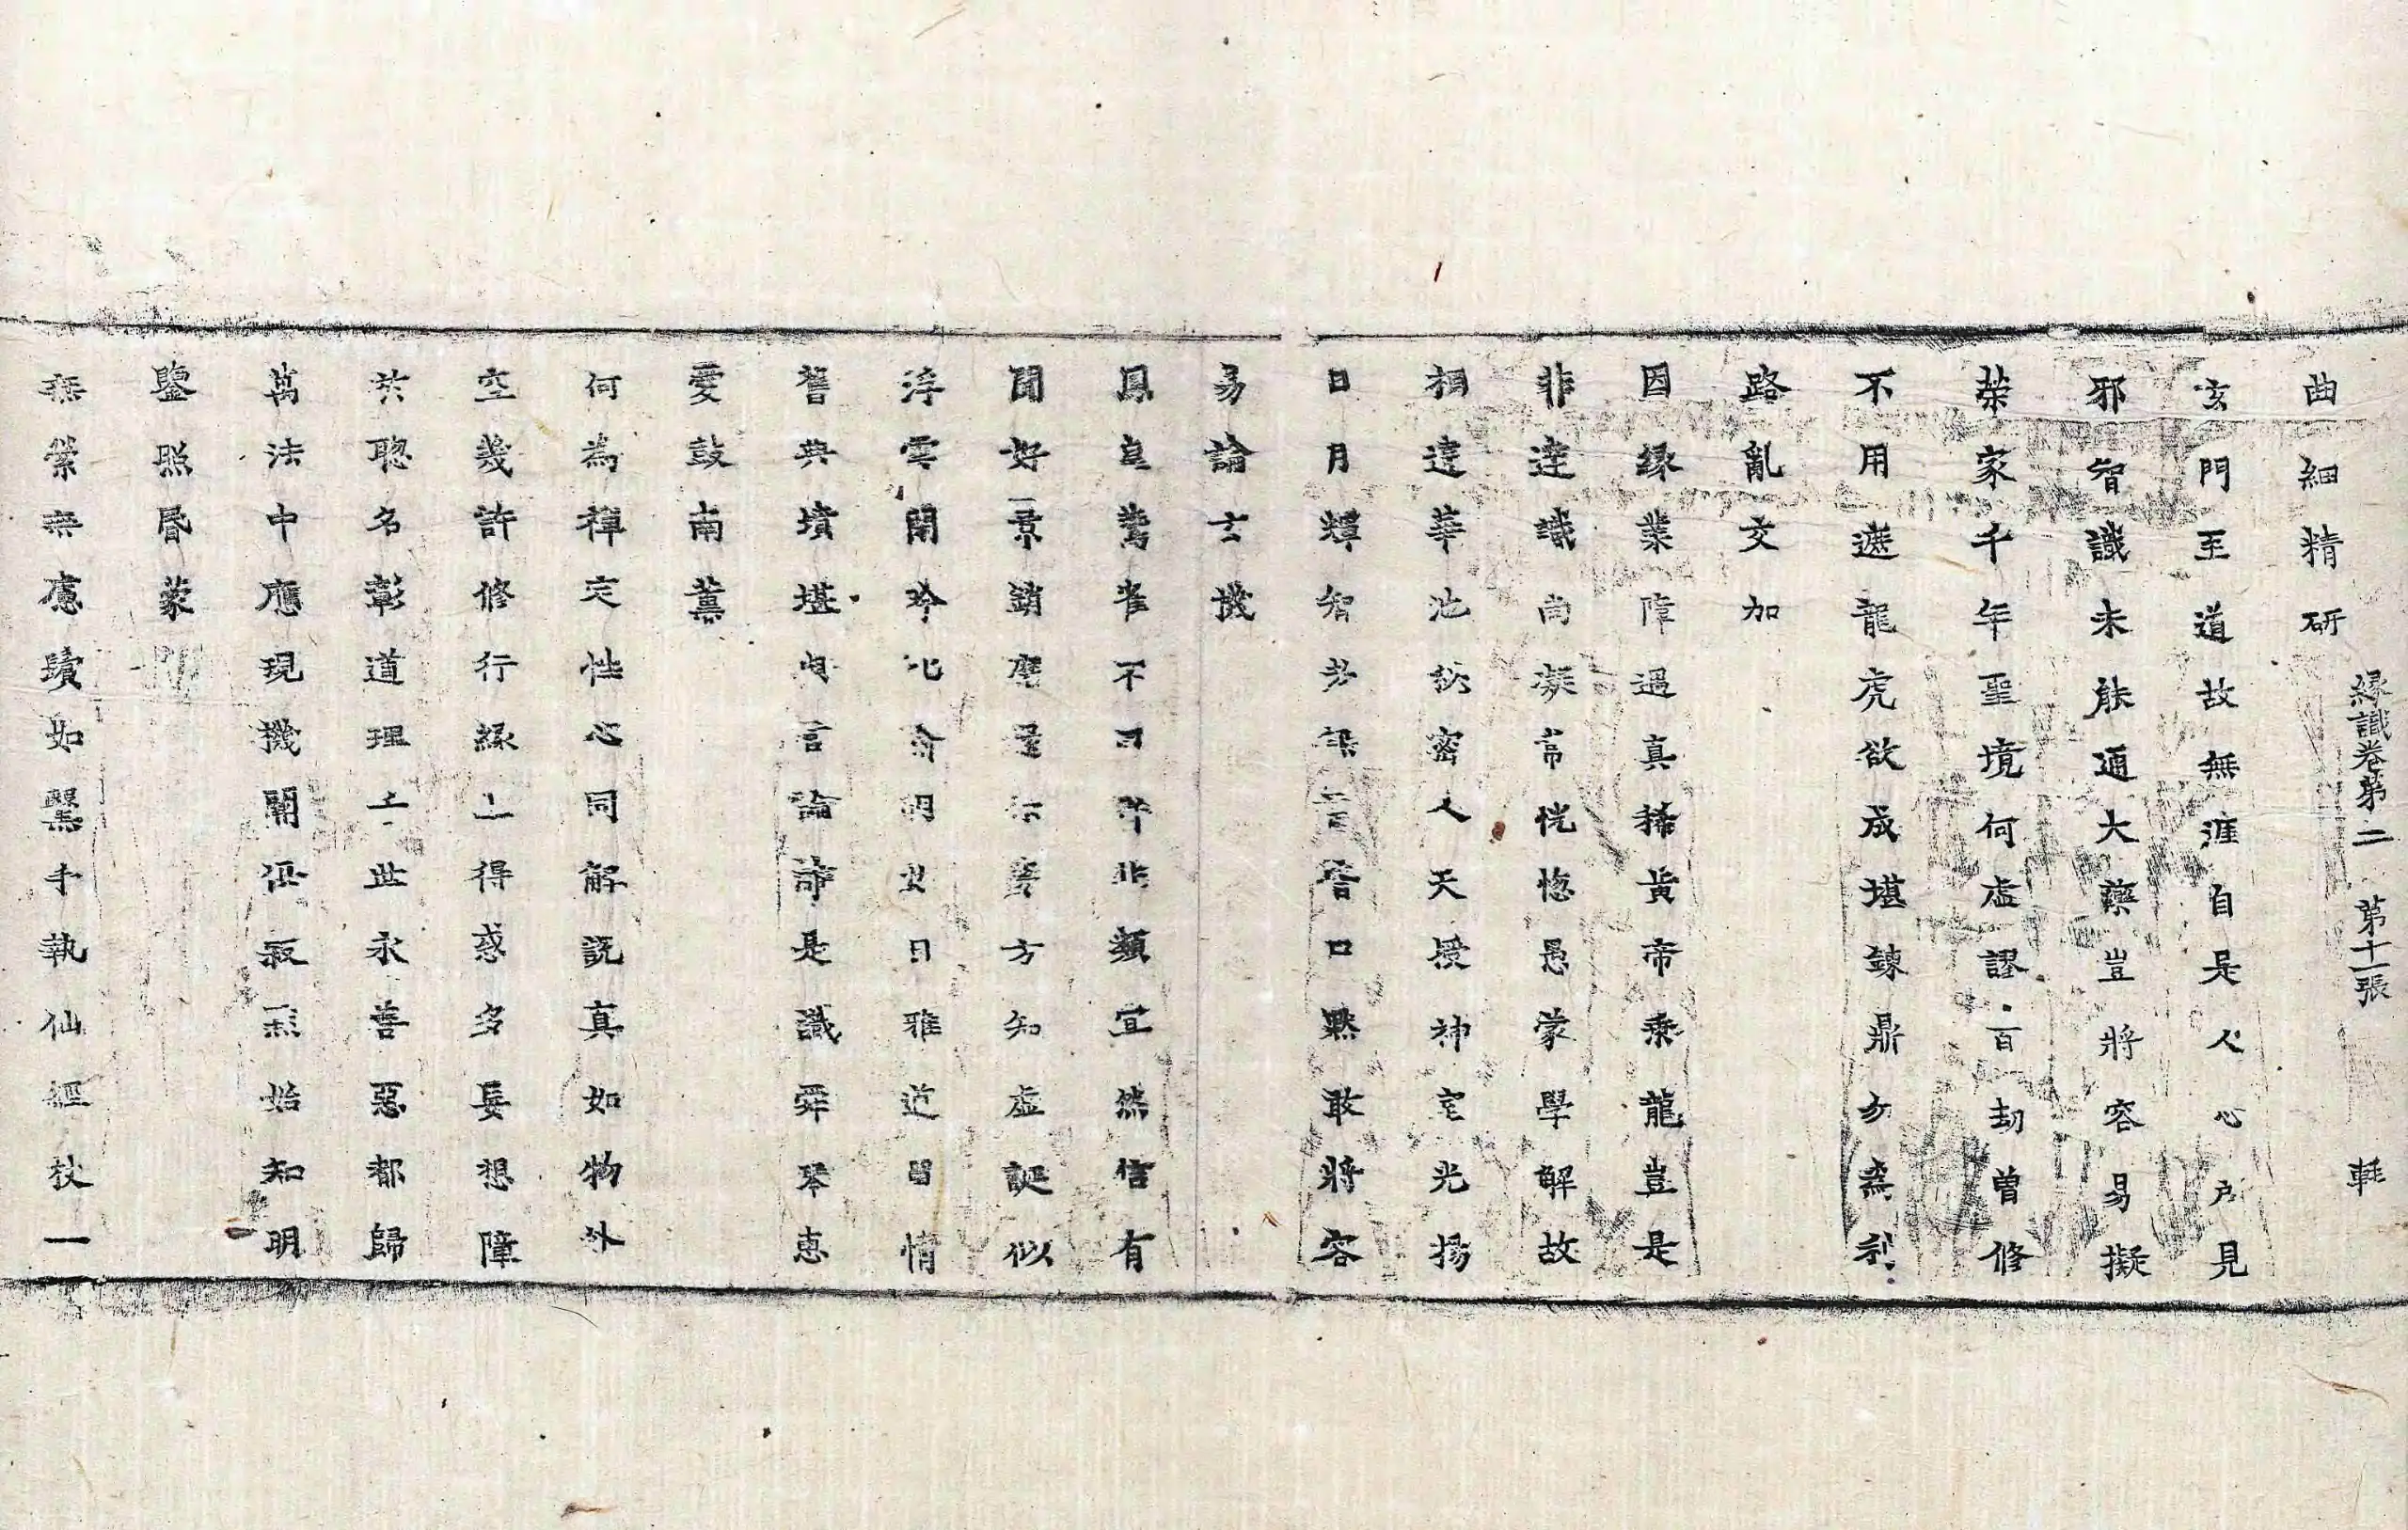 曲細精研
緣識卷第二 第十一張 輕
玄門至道故無涯自是人心所見
邪智識未能通大藥豈將容易擬
榮家千年聖境何虛謬百劫曾修
不用遮龍虎欲成堪鍊鼎勿為利
路亂交加
因緣業障過真稀黃帝乘龍豈是
非達識尚凝常恍惚愚蒙學解故
相違華池祕密人天授神室光揚
日月輝智者深言皆口默敢將容
易論士機
鳳皇鸞雀不同非類宜然信有
聞好景銷磨方知虛誕似
浮雲閑吟日雅道留情
舊典墳堪言論諦是識舜琴惠
愛鼓南薰
何為禪定性心同解說真如物外
空幾許修行緣上得惑多妄想障
於聰名彰道理二此永善惡都歸
萬法中應現機開俱寂然始知明
鑒照昬蒙
無榮無慮鬢如翳手執仙經杖一